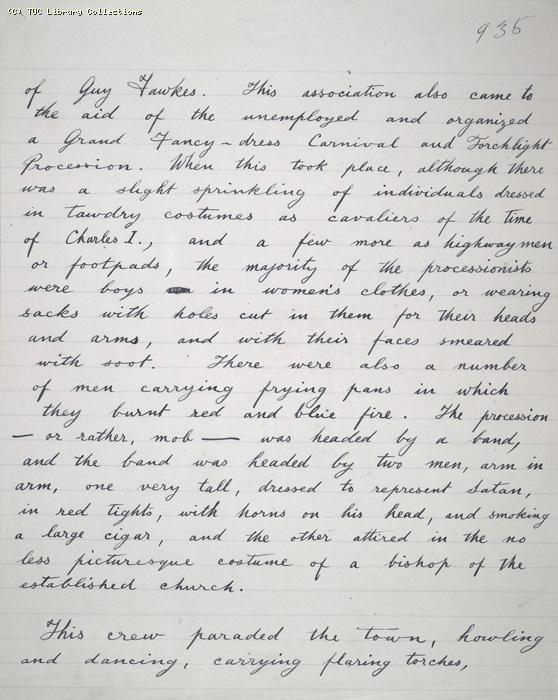 (C) TUC Library Collections
935
of Guy Fawkes. This association also came to
the aid of the unemployed and organized
a Grand Fancy-dress Carnival and Torchlight
Procession. When this took place, although there
was a slight sprinkling of individuals dressed
in tawdry costumes as cavaliers of the time
of Charles I., and a few more as highwaymen
or footpads, the majority of the processionists
were boys in women's clothes, or wearing
sacks with holes cut in them for their heads
and arms, and with their faces smeared
with soot. There were also a number
of men carrying frying pans in which
they burnt red and blue fire. The procession
— or rather, mob — was headed by a band,
and the band was headed by two men, arm in
arm, one very tall, dressed to represent Satan,
in red tights, with horns on his head, and smoking
a large cigar, and the other attired in the no
less picturesque costume of a bishop of the
established church.
This crew paraded the town, howling
and dancing, carrying flaring torches,